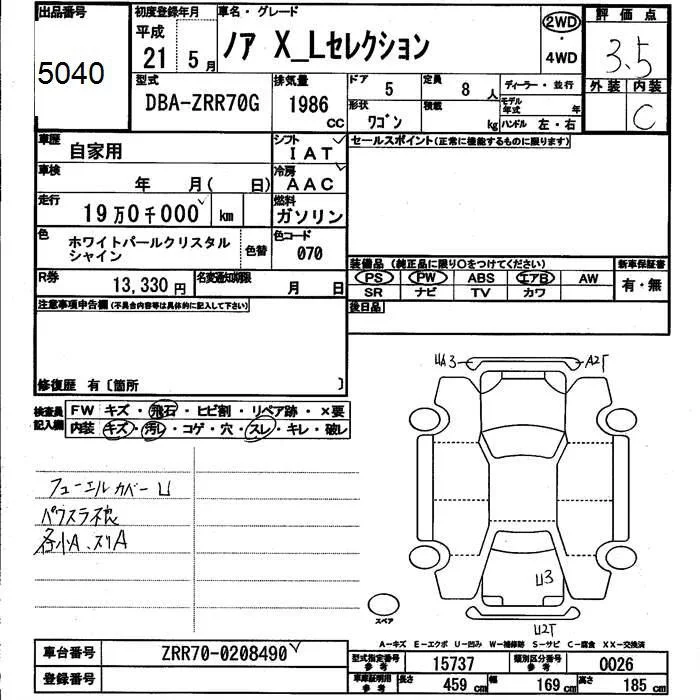 出品番号 初度登録年月 車名・グレード 評価点
5040 平成 21 5月 ノア X_Lセレクション 2WD・4WD 3.5
型式 排気量 ドア 定員 ディーラー・並行 外装 内装
DBA-ZRR70G 1986 CC 5 8人 モデル年式 年 C
形状 ワゴン 積載 kg ハンドル 左・右
車歴 自家用 シフト IAT セールスポイント(正常に機能するものに限ります)
車検 年 月( 日) 冷房 AAC
走行 19万0千000 km 燃料 ガソリン
色 ホワイトパールクリスタルシャイン 色替 色コード 070
装備品 (純正品に限り○をつけてください) 新車保証書
PS PW ABS エアB AW 有・無
SR ナビ TV カワ
R券 13,330円 名変通知期限 月 日 後日品
注意事項申告欄(不具合内容等は具体的に記入して下さい)
修復歴 有〔箇所 〕
検査員記入欄 FW キズ・飛石・ヒビ割・リペア跡・×要
内装 キズ・汚レ・コゲ・穴・スレ・キレ・破レ
UA3 A2T
フューエルカバーU
パワスラ不良
各小A、スリA
U3
スペア U2T
A-キズ E-エクボ U-凹み W-補修跡 S-サビ C-腐食 XX-交換済
車台番号 ZRR70-0208490
型式指定番号 参考 15737 類別区分番号 参考 0026
登録番号
車庫証明用 参考 長さ 459cm 幅 169cm 高さ 185cm